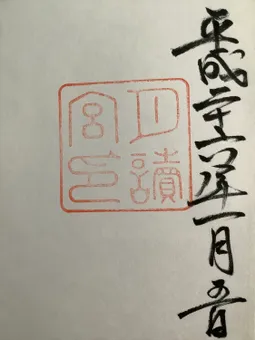 平成二十六年一月五日
月讀
宮印